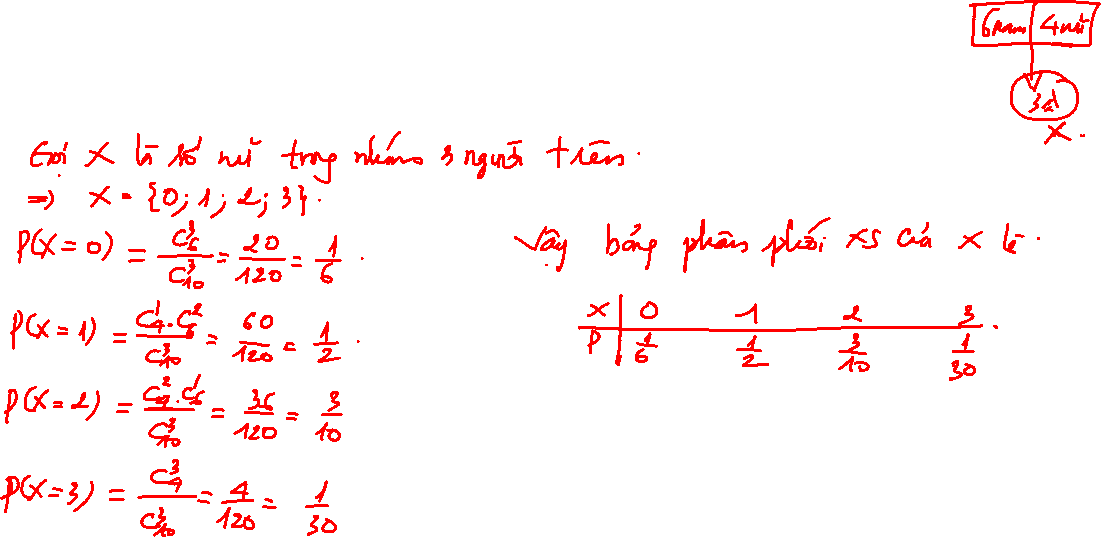 6 nam | 4 nữ
3đ
X.
Gọi X là số nữ trong nhóm 3 người trên.
=> X = {0; 1; 2; 3}.
P(X = 0) = C³₆ / C³₁₀ = 20/120 = 1/6 .
P(X = 1) = C¹₄.C²₆ / C³₁₀ = 60/120 = 1/2 .
P(X = 2) = C²₄.C¹₆ / C³₁₀ = 36/120 = 3/10
P(X = 3) = C³₄ / C³₁₀ = 4/120 = 1/30
Vậy bảng phân phối XS của X là.
X | 0 1 2 3
P | 1/6 1/2 3/10 1/30 .